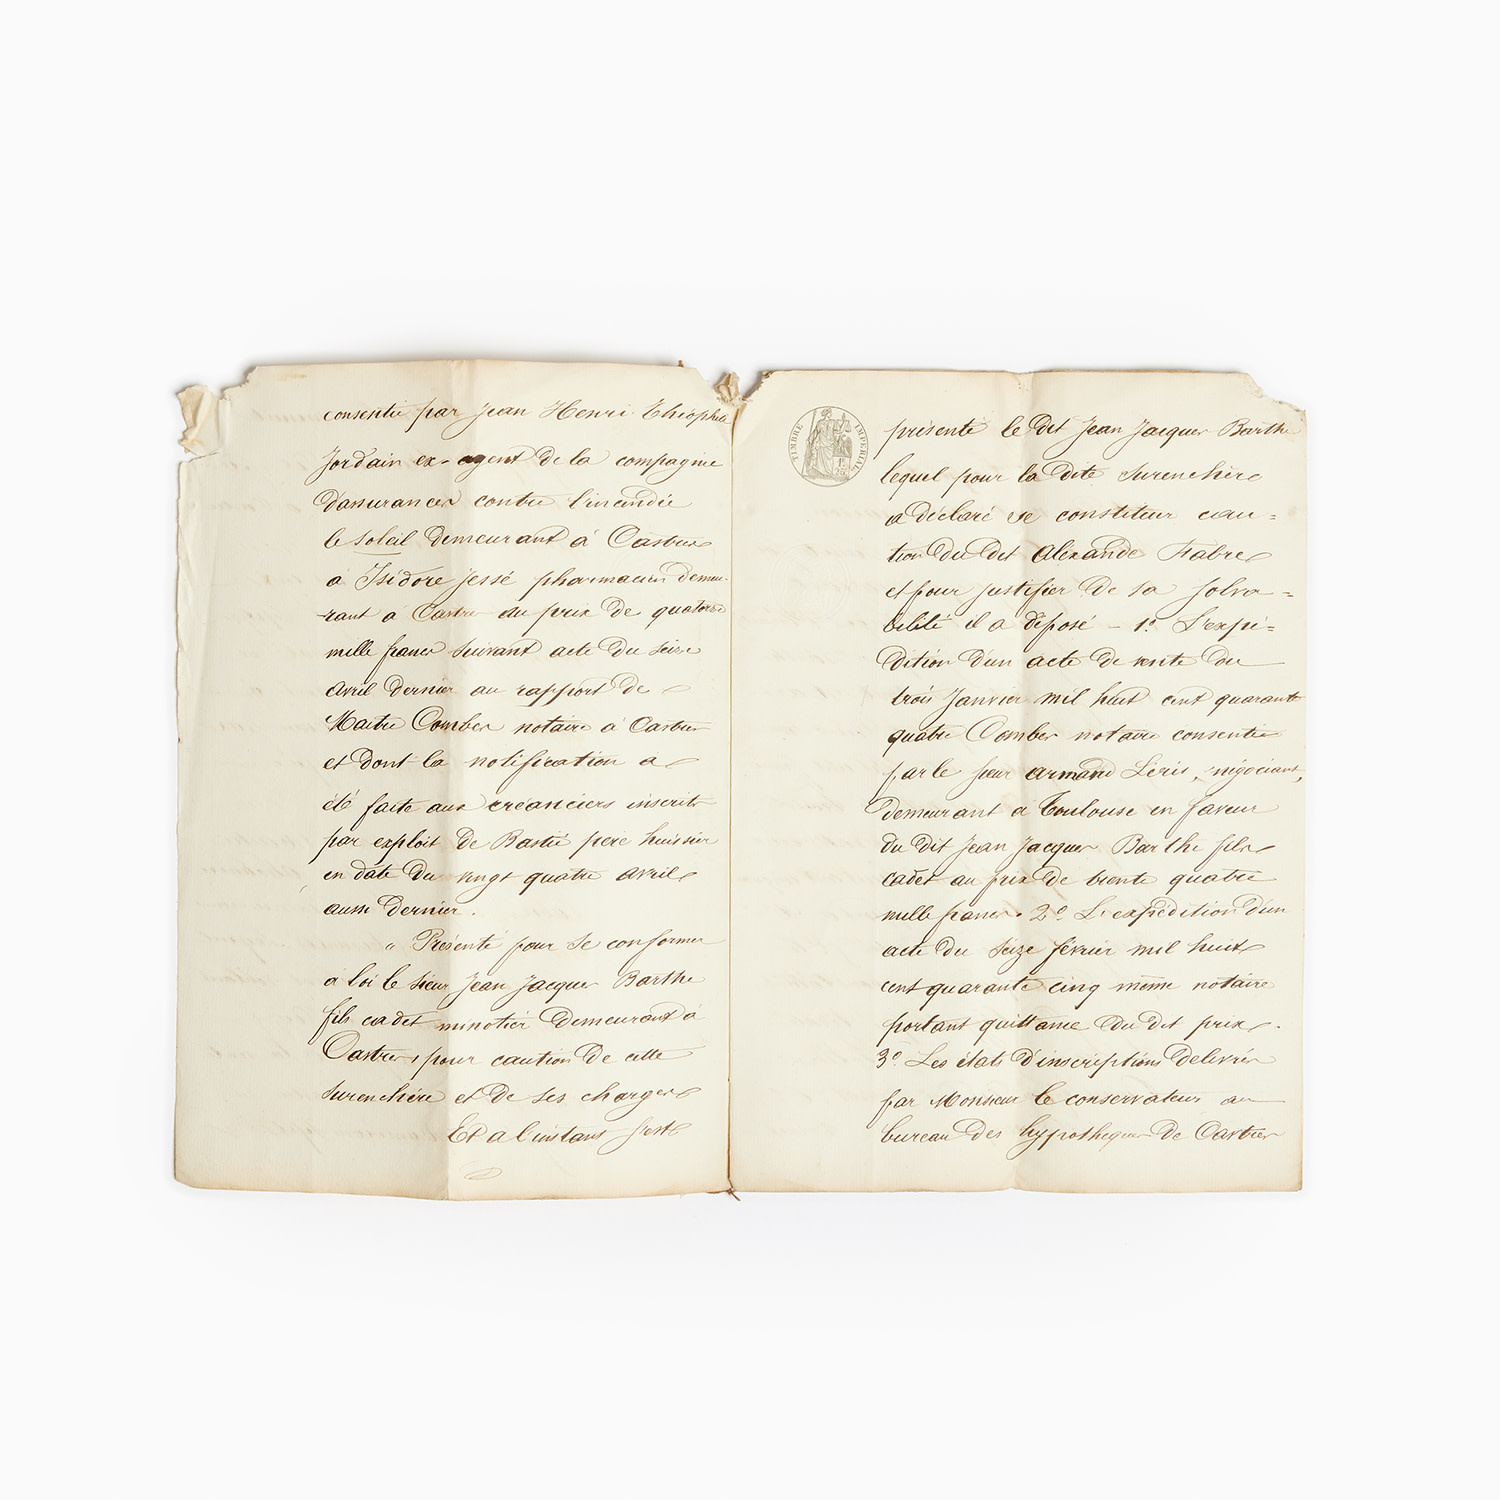 consentie par Jean Henri Théophile
Jordain ex-agent de la compagnie
d'assurances contre l'incendie
le Soleil demeurant à Castres
à Isidore Jessé pharmacien demeu-
rant à Castres au prix de quatorze
mille francs suivant acte du seize
avril dernier au rapport de
Maitre Combes notaire à Castres
et dont la notification a
été faite aux créanciers inscrits
par exploit de Bastié père huissier
en date du vingt quatre avril
aussi dernier.
" Présente pour se conformer
à loi le sieur Jean Jacques Barthe
fils cadet minotier demeurant à
Castres, pour caution de cette
surenchère et de ses charges
Et a l'instant s'est
TIMBRE IMPERIAL
présenté le dit Jean Jacques Barthe
lequel pour la dite surenchère
a déclaré se constituer cau=
tion du dit Alexande Fabre
et pour justifier de sa solva=
bilité il a déposé - 1º L'expé=
dition d'un acte de vente du
trois Janvier mil huit cent quarante
quatre Combes notaire consentie
par le sieur armand Leris, négociant,
demeurant à Toulouse en faveur
du dit Jean Jacques Barthe fils
cadet au prix de trente quatre
mille francs. 2º L'expédition d'un
acte du seize février mil huit
cent quarante cinq même notaire
portant quittance du dit prix.
3º Les états d'inscriptions délivrés
par Monsieur le conservateur au
bureau des hypotheques de Castres